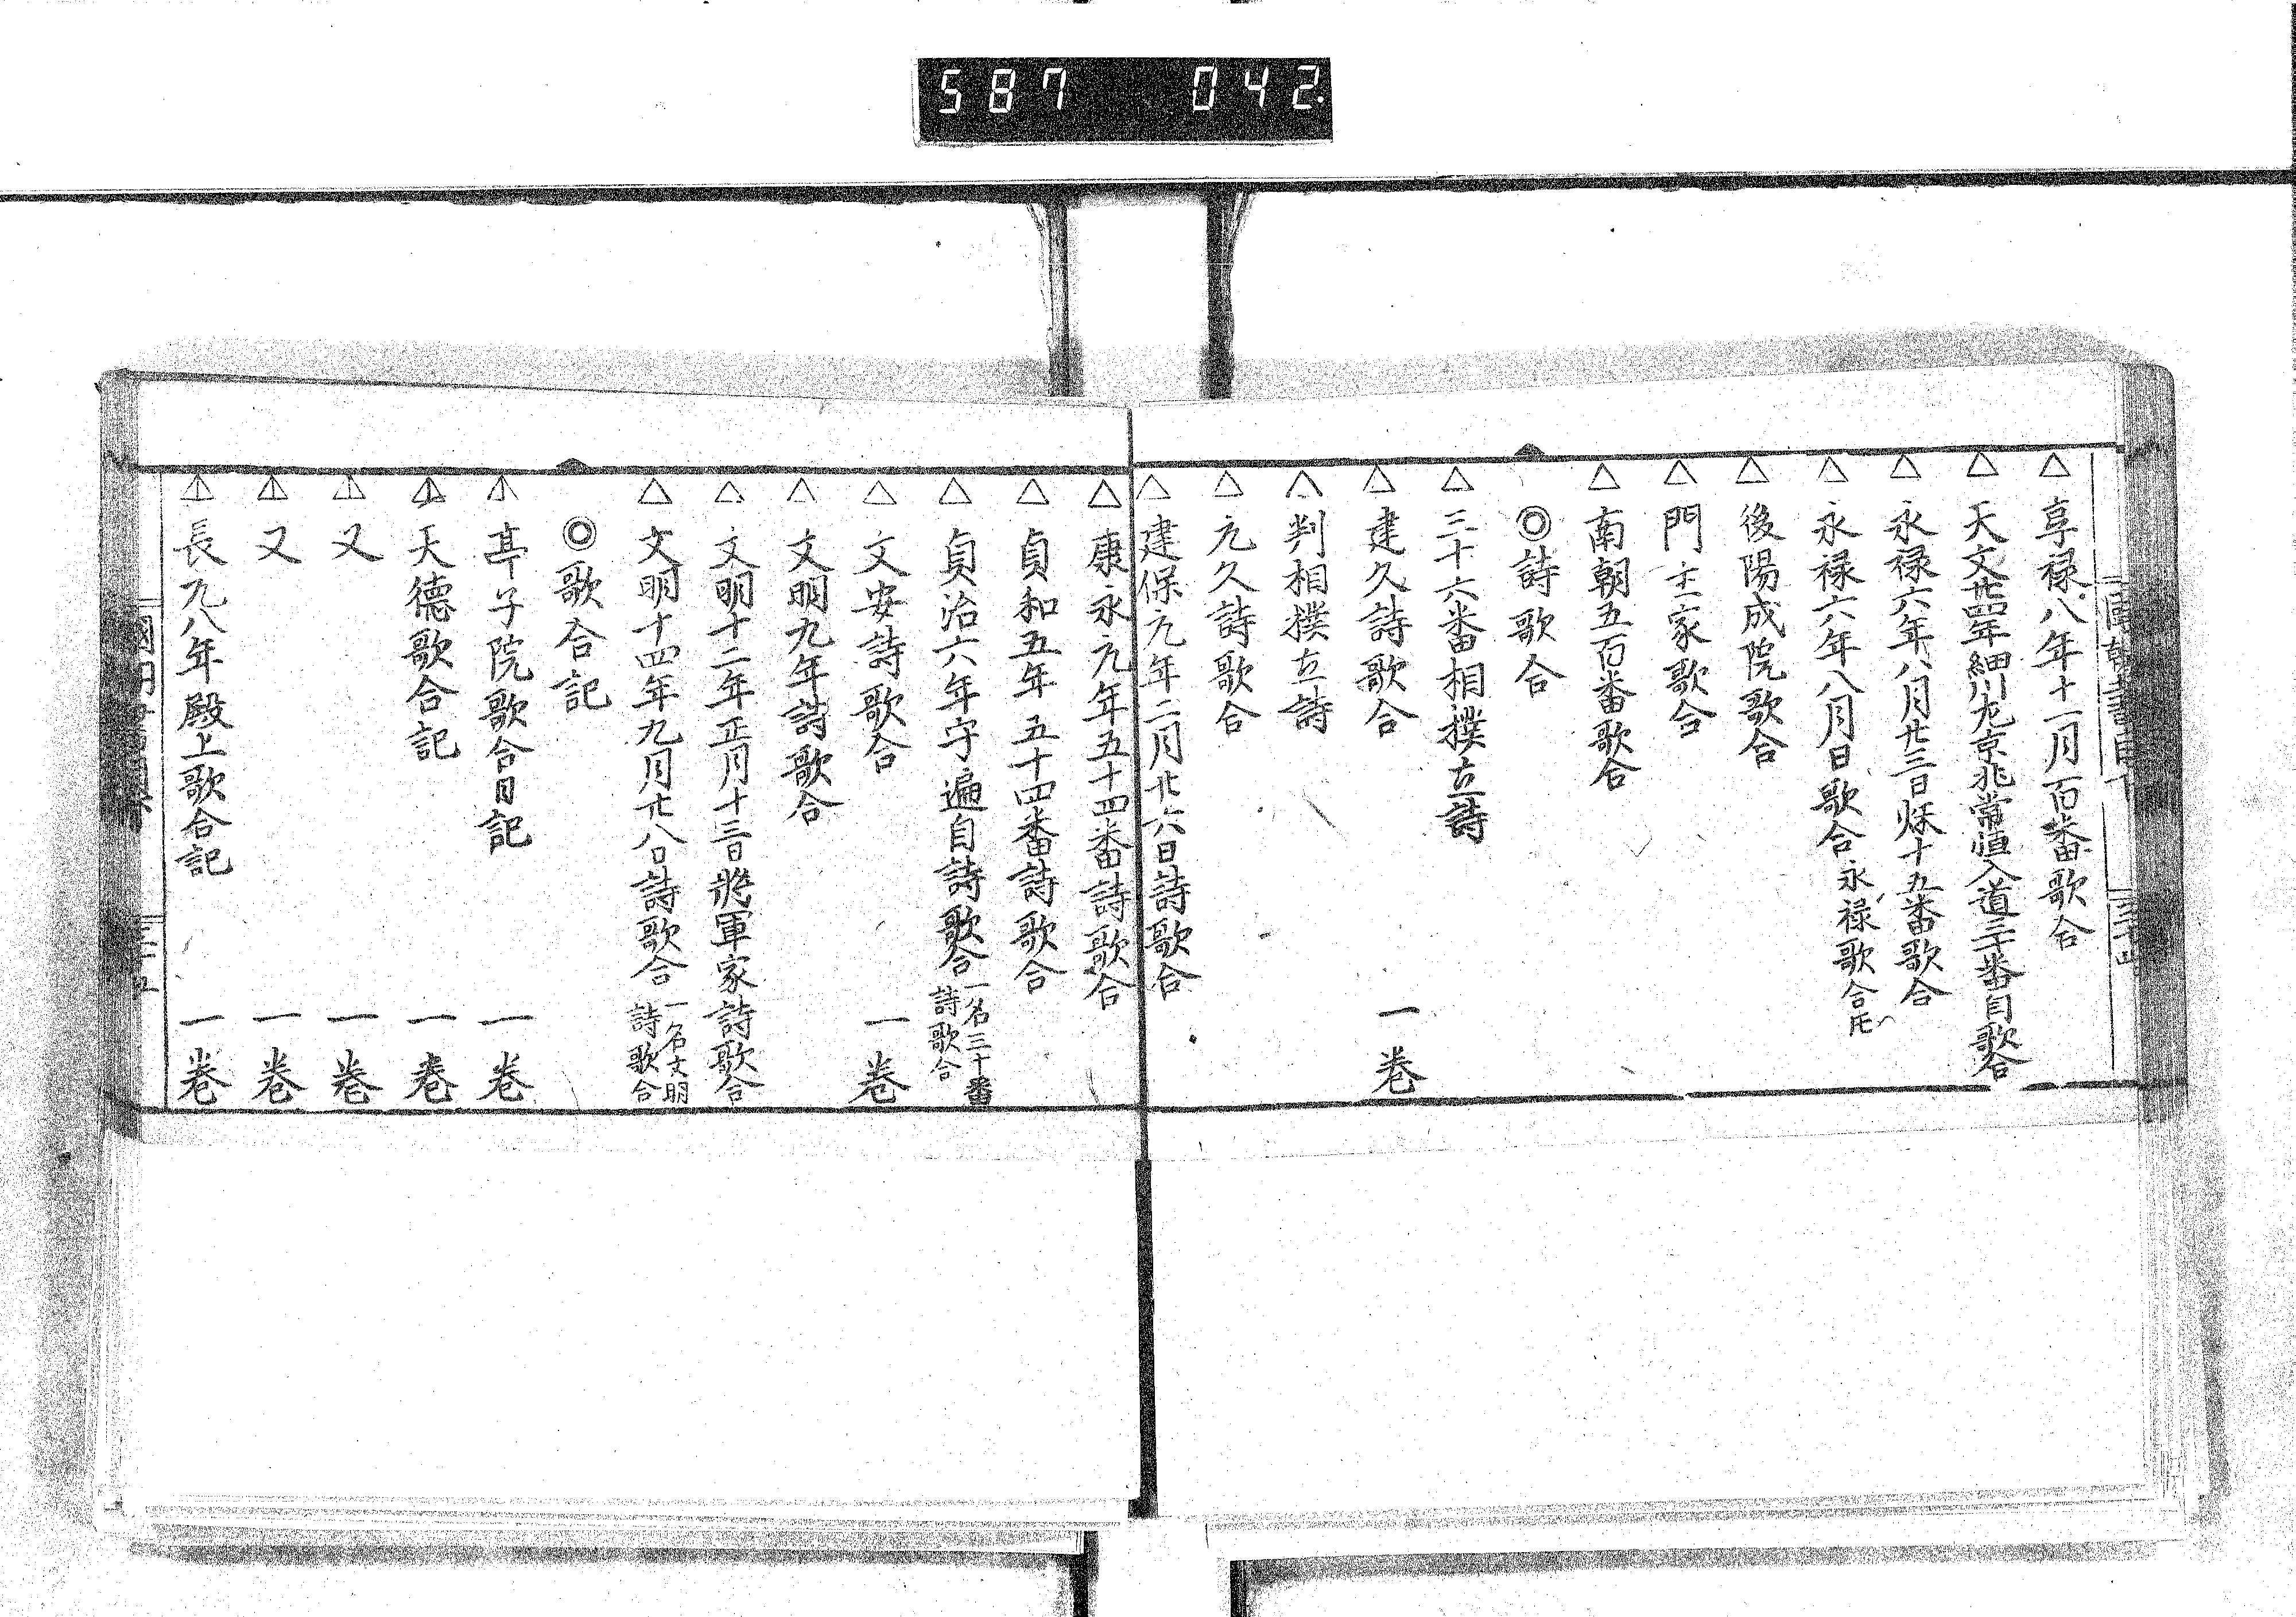 587 042.
△享禄八年十一月百番歌合
△天文廿四年細川右京兆常恒入道三十番自歌合
△永禄六年八月廿三日烁十五番歌合
△永禄六年八月日歌合 永禄歌合氏
△後陽成院歌合
△門主家歌合
△南朝五百番歌合
◎詩歌合
△三十六番相撲立詩
△建久詩歌合 一巻
△判相撲立詩
△元久詩歌合
△建保元年二月廿六日詩歌合
△康永元年五十四番詩歌合
△貞和五年五十四番詩歌合
△貞治六年守遍自詩歌合 一名三十番詩歌合
△文安詩歌合 一巻
△文明九年詩歌合
△文明十二年正月十三日將軍家詩歌合
△文明十四年九月廿八日詩歌合 一名文明詩歌合
◎歌合記
△亭子院歌合日記 一巻
△天徳歌合記 一巻
△又 一巻
△又 一巻
△長元八年殿上歌合記 一巻